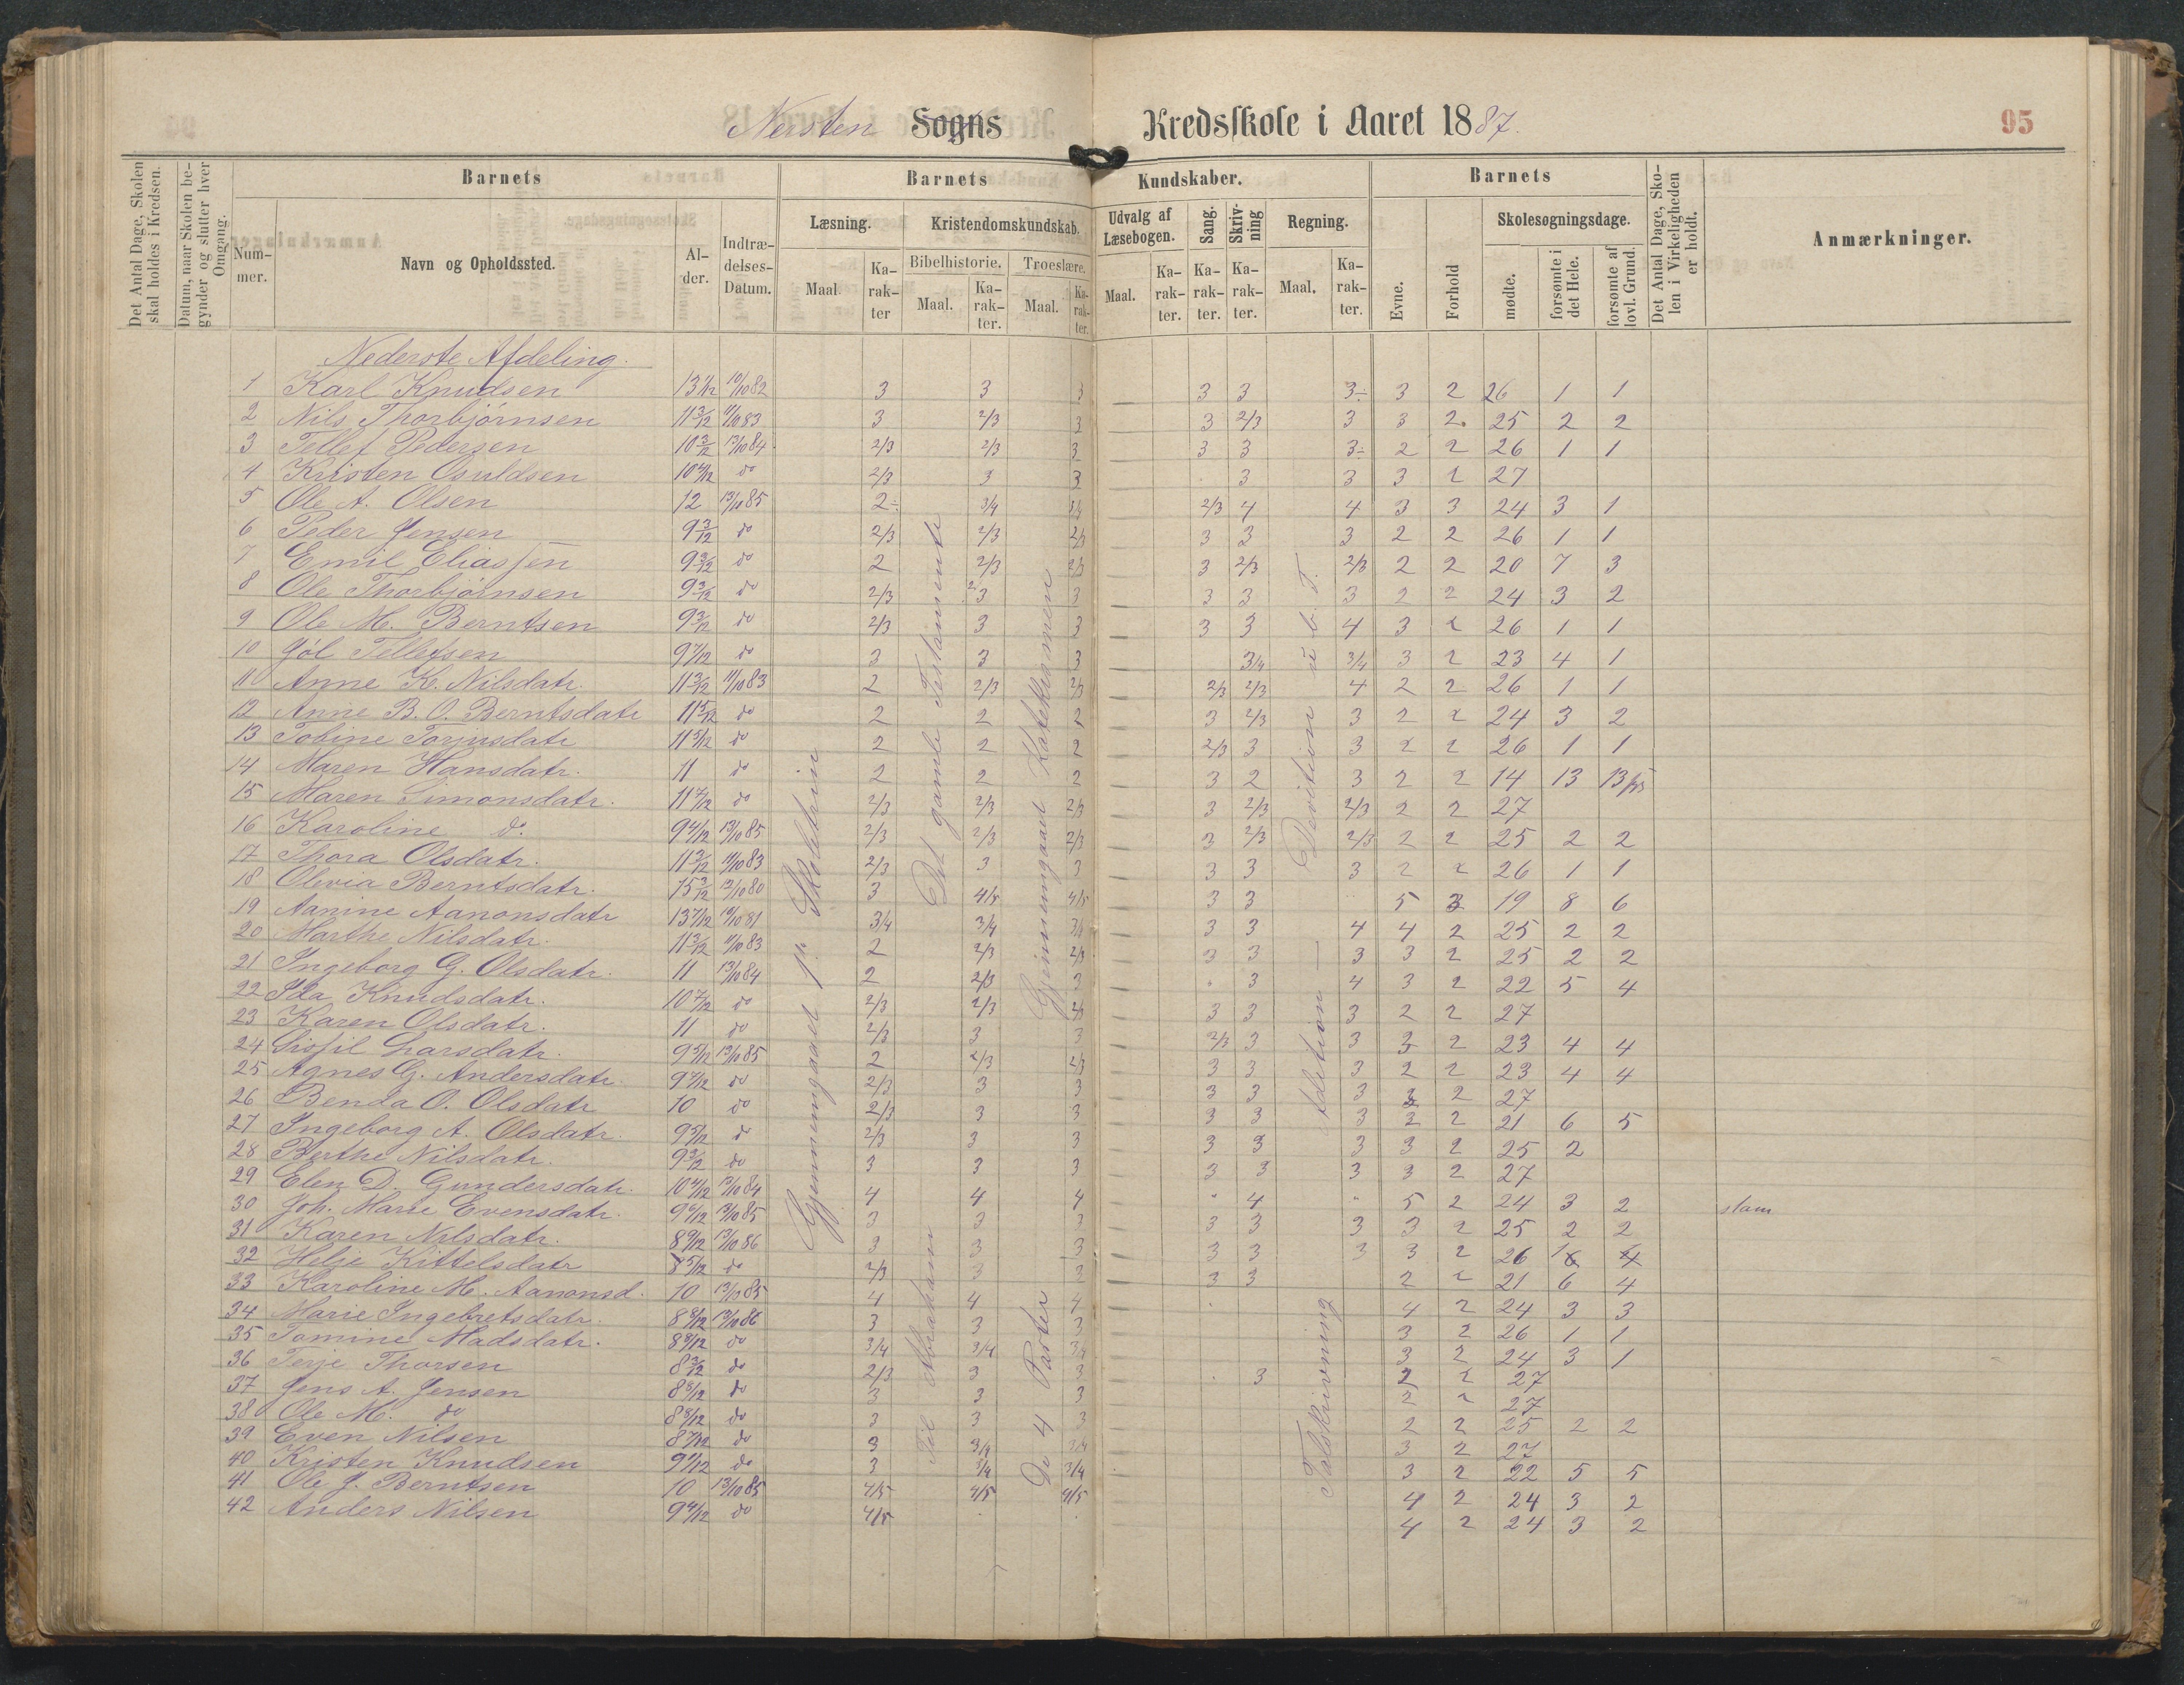 Nersten Sogns Kredsskole i Aaret 1887.
95
Det Antal Dage, Skolen skal holdes i Kredsen.
Datum, naar Skolen begynder og slutter hver Omgang.
Barnets
Nummer.
Navn og Opholdssted.
Alder.
Indtrædelses-Datum.
Barnets Kundskaber.
Læsning.
Maal
Karakter
Kristendomskundskab.
Bibelhistorie.
Maal.
Karakter.
Troeslære.
Maal.
Karakter.
Udvalg af Læsebogen.
Maal.
Karakter.
Sang.
Karakter.
Skrivning
Karakter.
Regning.
Maal.
Karakter.
Barnets
Evne.
Forhold
Skolesøgningsdage.
mødte.
forsømte i det Hele.
forsømte af lovl. Grund.
Det Antal Dage, Skolen i Virkeligheden er holdt.
Anmærkninger.
Nederste Afdeling.
1 Karl Knudsen 3 3 3 3 3 3÷ 3 2 26 1 1
2 Nils Thorbjørnsen 11 3/12 11/10 83 3 2/3 3 3 2/3 3 3 2 25 2 2
3 Tellef Pedersen 10 3/12 13/10 84 2/3 2/3 3 3 3 3÷ 2 2 26 1 1
4 Kristen Osuldsen do 2/3 3 3 3 3 3 2 27
5 Ole A. Olsen 12 13/10 85 2÷ 3/4 3/4 2/3 4 4 3 3 24 3 1
6 Peder Jensen 9 3/12 do 2/3 2/3 2/3 3 3 3 2 2 26 1 1
7 Emil Eliassen 9 3/12 do 2 2/3 2/3 3 2/3 2/3 2 2 20 7 3
8 Ole Thorbjørnsen 9 3/12 do 2/3 2/3 3 3 3 3 2 2 24 3 2
9 Ole M. Berntsen 9 3/12 do 2/3 3 3 3 3 4 3 2 26 1 1
10 Jól Tellefsen 9 7/12 do 3 3 3 3/4 3/4 3 2 23 4 1
11 Anne K. Nilsdatr. 11 3/12 11/10 83 2 2/3 2/3 2/3 2/3 4 2 2 26 1 1
12 Anne B. O. Berntsdatr 11 5/12 do 2 2 2 3 2/3 3 2 2 24 3 2
13 Tobine Torjusdatr 11 5/12 do 2 2 2 2/3 3 3 2 2 26 1 1
14 Maren Hansdatr. 11 do 2 2 2 3 2 3 2 2 14 13 13
15 Maren Simonsdatr. 11 7/12 do 2/3 2/3 2/3 3 2/3 2/3 2 2 27
16 Karoline do 9 4/12 13/10 85 2/3 2/3 2/3 3 2/3 2/3 2 2 25 2 2
17 Thora Olsdatr. 11 3/12 11/10 83 2/3 3 3 3 3 3 2 2 26 1 1
18 Olevia Berntsdatr. 15 3/12 13/10 80 3 4/5 4/5 3 3 5 3 19 8 6
19 Aanine Aanonsdatr 13 7/12 3/4 3/4 3/4 3 3 4 4 2 25 2 2
20 Marthe Nilsdatr. 11 3/12 11/10 83 2 2/3 2/3 3 3 3 3 2 25 2 2
21 Ingeborg G. Olsdatr. 11 13/10 84 2 2/3 3 3 4 3 2 22 5 4
22 Ida Knudsdatr. 10 7/12 do 2/3 2/3 2/3 3 3 3 2 2 27
23 Karen Olsdatr. 11 do 2/3 3 3 2/3 3 3 3 2 23 4 4
24 Sissil Larsdatr. 9 5/12 13/10 85 2 2/3 2/3 3 3 3 2 2 23 4 4
25 Agnes G. Andersdatr. 9 7/12 do 2/3 3 3 3 3 3 3 2 27
26 Benda O. Olsdatr 10 do 2/3 3 3 3 3 3 2 2 21 6 5
27 Ingeborg A. Olsdatr. 9 5/12 do 2/3 3 3 3 3 3 3 2 25 2
28 Berthe Nilsdatr. 9 3/12 do 3 3 3 3 3 3 3 2 27
29 Elen D. Gundersdatr. 10 4/12 13/10 84 4 4 4 4 5 2 24 3 2 stam
30 Joh. Marie Evensdatr. 13/10 85 3 3 3 3 3 3 3 2 25 2 2
31 Karen Nilsdatr. 8 9/12 13/10 86 3 3 3 3 3 3 3 2 26 1
32 Helje Kittelsdatr 8 5/12 do 2/3 3 3 3 3 2 2 21 6 4
33 Karoline M. Aanonsd. 10 13/10 85 4 4 4 4 2 24 3 3
34 Marie Ingebretsdatr. 8 8/12 13/10 86 3 3 3 3 2 26 1 1
35 Tomine Madsdatr. 8 8/12 do 3/4 3/4 3/4 3 2 24 3 1
36 Terje Thorsen 8 3/12 do 2/3 3 3 3 2 2 27
37 Jens A. Jensen 8 8/12 do 3 3 3 2 2 27
38 Ole M. do 8 8/12 do 3 3 3 2 2 25 2 2
39 Even Nilsen 8 7/12 do 3 3/4 3/4 3 2 27
40 Kristen Knudsen do 3 3/4 3/4 3 2 22 5 5
41 Ole J. Berntsen 10 13/10 85 4/5 4/5 4/5 4 2 24 3 2
42 Anders Nilsen 9 4/12 do 4/5 4 2 24 3 2
Gjennemgaaet 1ste Skoletrin
Det gamle Testamente
Til Abraham
Gjennemgaaet Katekismen
De 4 Parter
Adition — Devition u. b. T.
Talskrivning